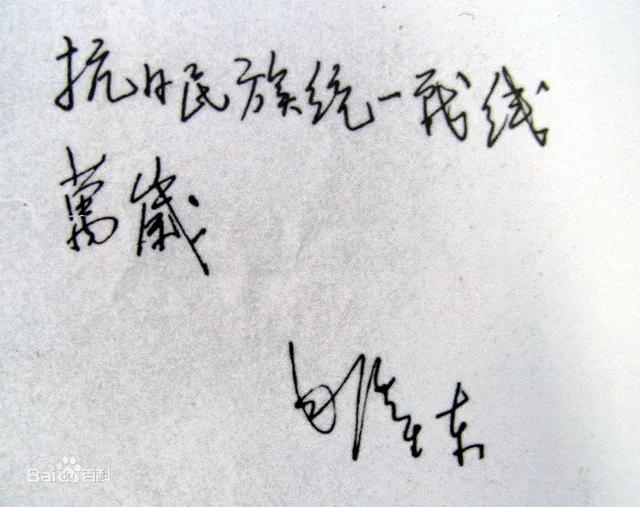 抗日民族统一战线
萬歲
Bai du 百科